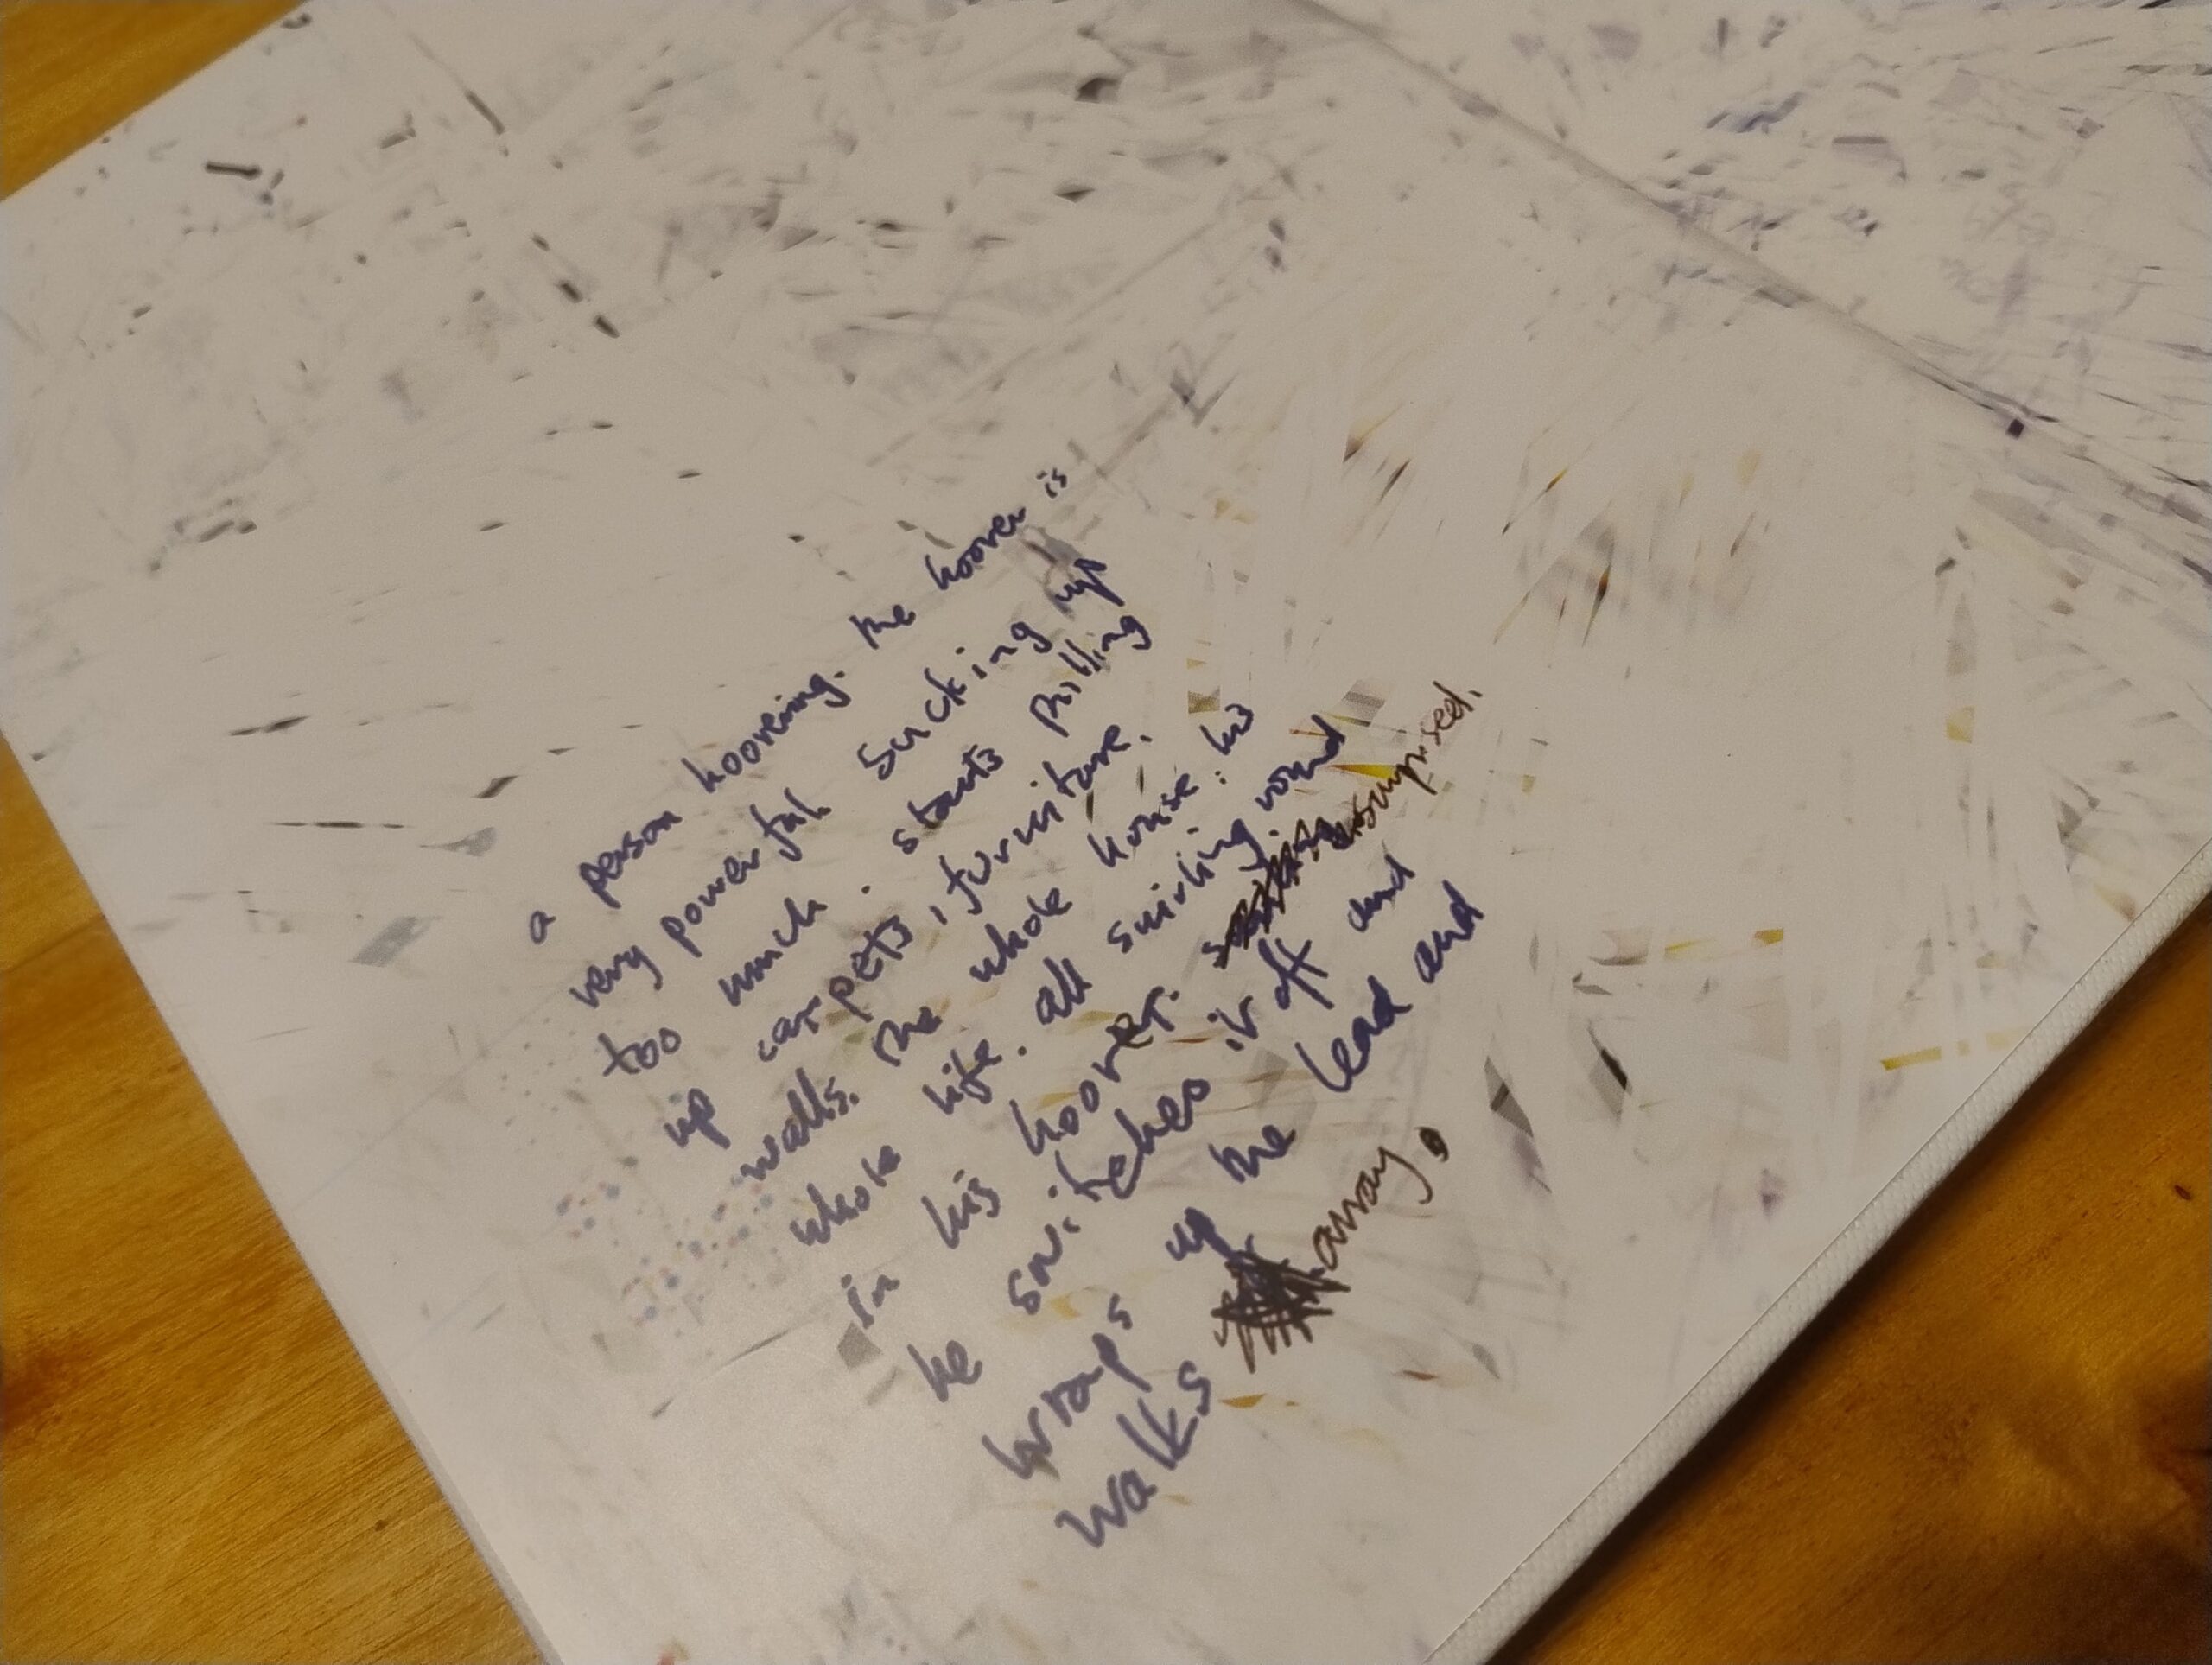 a person hoovering. the hoover is
very powerful sucking up
too much. starts pulling
up carpets, furniture.
walls. the whole house. his
whole life. all swirling round
in his hoover. unsurprised.
he switches it off and
wraps up the lead and
walks away.